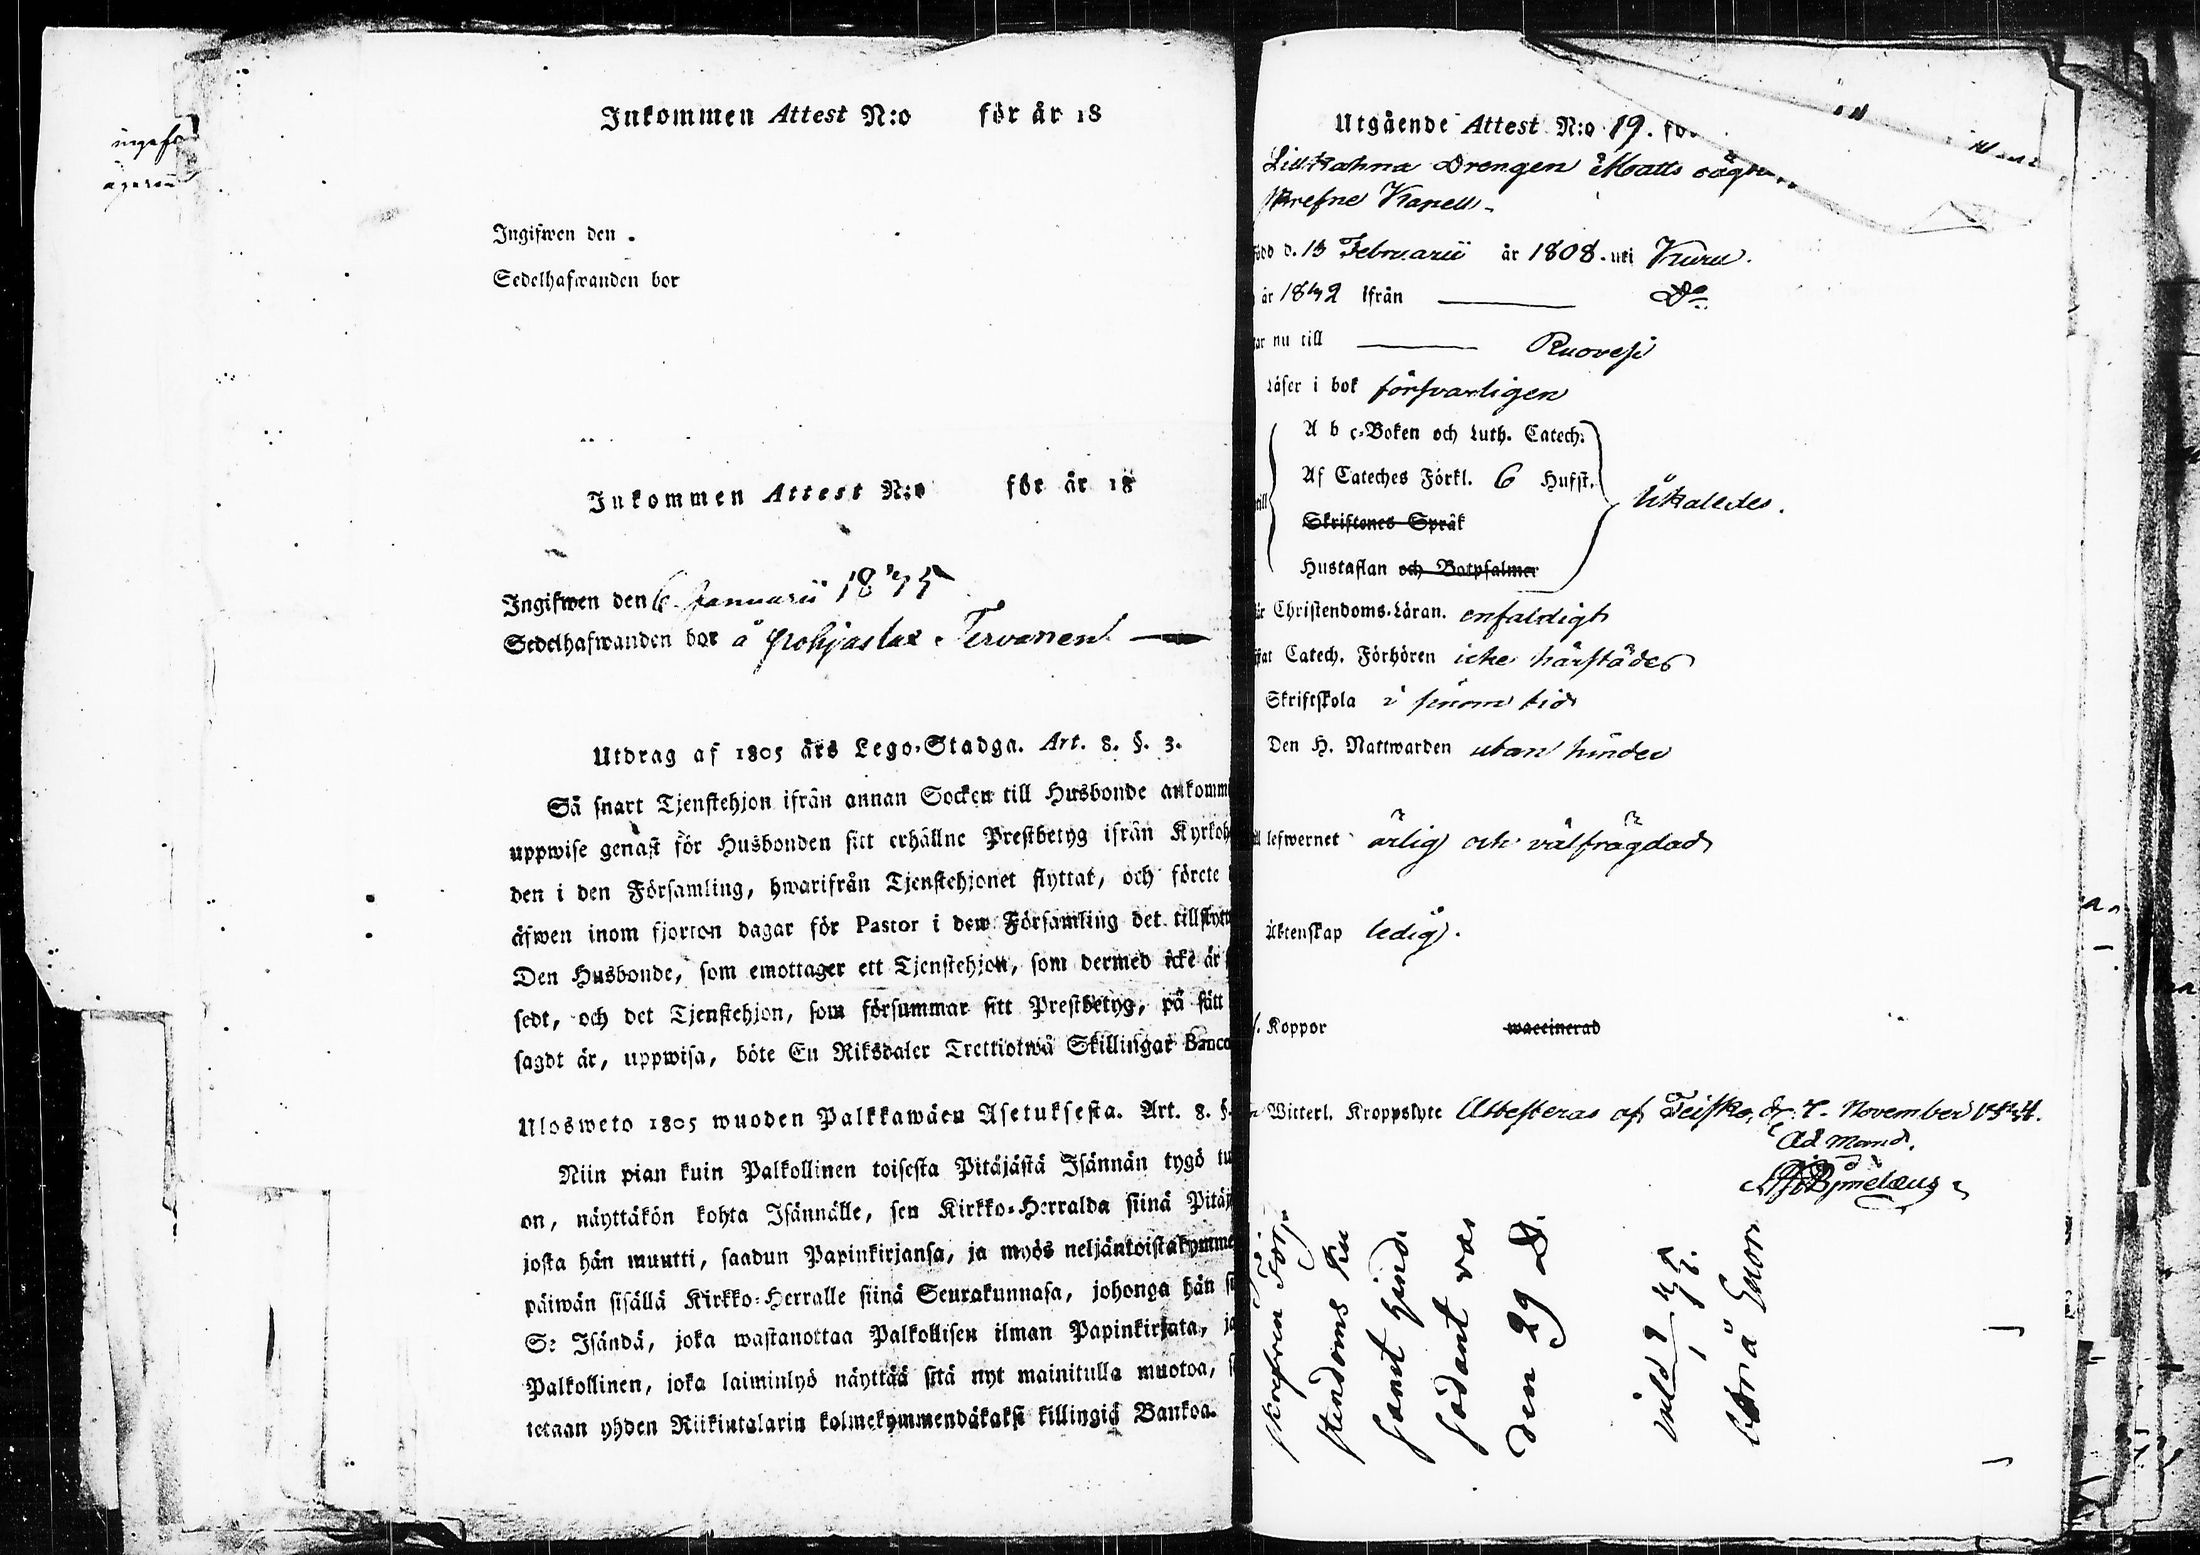 Inkommen Attest N:o för år 18
Ingifwen den
Sedelhafwanden bor
Inkommen Attest N:o för år 18
Ingifwen den 6 Januarii 1845
Sedelhafwanden bor å Pohjaslax Tervanen
Utdrag af 1805 års Lego-Stadga. Art. 8. §. 3.
Så snart Tjenstehjon ifrån annan Socken till Husbonde ankomm
uppwise genast för Husbonden sitt erhållne Prestbetyg ifrån Kyrkoh
den i den Församling, hwarifrån Tjenstehjonet flyttat, och förete
äfwen inom fjorton dagar för Pastor i den Församling det tillflytt
Den Husbonde, som emottager ett Tjenstehjon, som dermed icke är
sedt, och det Tjenstehjon, som försummar sitt Prestbetyg, på sätt
sagdt är, uppwisa, böte En Riksdaler Trettiotwå Skillingar Banco
Ulosweto 1805 wuoden Palkkawäen Asetuksesta. Art. 8. §.
Niin pian kuin Palkollinen toisesta Pitäjästä Isännän tygö tu
on, näyttäkön kohta Isännälle, sen Kirkko-Herralda siinä Pitäj
josta hän muutti, saadun Papinkirjansa, ja myös neljäntoistakymme
päiwän sisällä Kirkko-Herralle siinä Seurakunnasa, johonga hän si
S: Isändä, joka wastanottaa Palkollisen ilman Papinkirjata, ja
Palkollinen, joka laiminlyö näyttää sitä nyt mainitulla muotoa, s
tetaan yhden Riikintalarin kolmekymmendäkaksi killingiä Bankoa.
Utgående Attest N:o 19. för
Drengen Matts
skrefne Kapell
född d. 13 Februarii år 1808. uti Kuru.
år 1842 ifrån Do
nu till Ruovesi
Läser i bok försvarligen
A b c-Boken och Luth. Catech.
Af Cateches Förkl. 6 Hufst.
till
Skriftenes Språk
likaledes.
Hustaflan och Botpsalmer
Christendoms-Läran. enfaldigt
Catech. Förhören icke härstädes
Skriftskola i sinom tid
Den H. Nattwarden utan hinder
lefwernet ärlig och välfrägdad
Äktenskap ledig.
Koppor waccinerad
Witterl. Kroppslyte Attesteras af Teisko, d. 7. November 1844.
Ad mand.
skrefven
stendoms
samt
sådant
den 29 D.